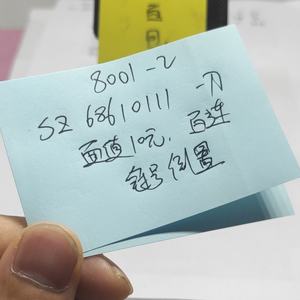 百
8001-2
SZ 68610111 一刀
面值10元. 百连
冠号倒置